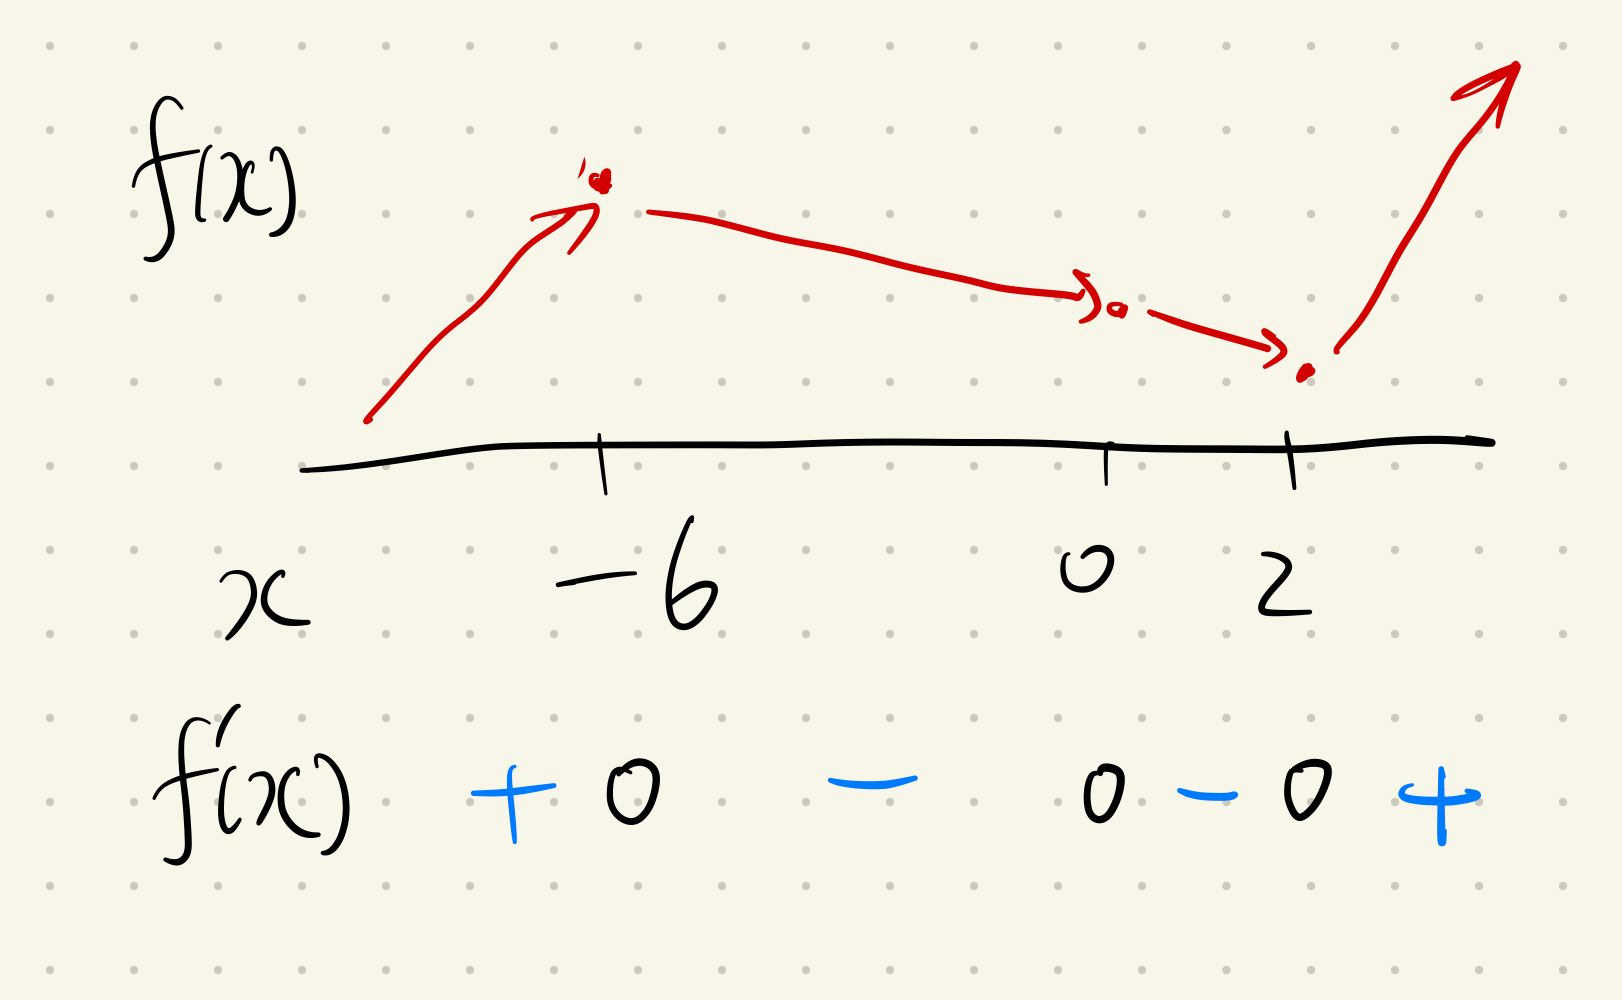 f(x)
x -6 0 2
f'(x) + 0 - 0 - 0 +